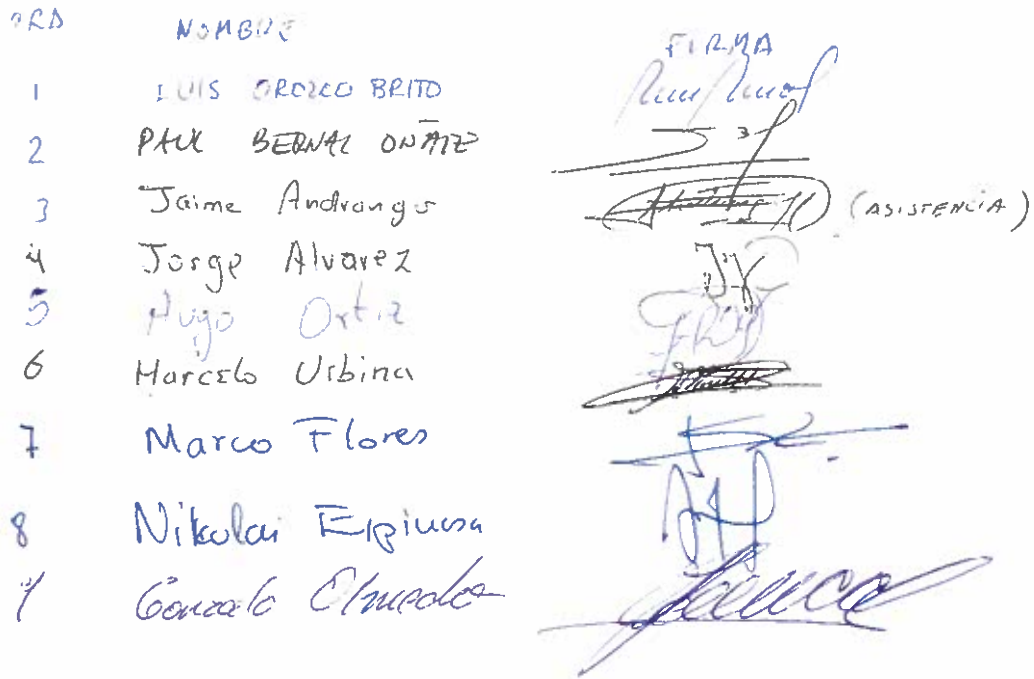 ORD NOMBRE FIRMA
1 LUIS OROZCO BRITO
2 PAUL BERNAL OÑATE
3 Jaime Andrango (ASISTENCIA)
4 Jorge Alvarez
5 Hugo Ortiz
6 Marcelo Urbina
7 Marco Flores
8 Nikolai Espinosa
9 Gonzalo Olmedo